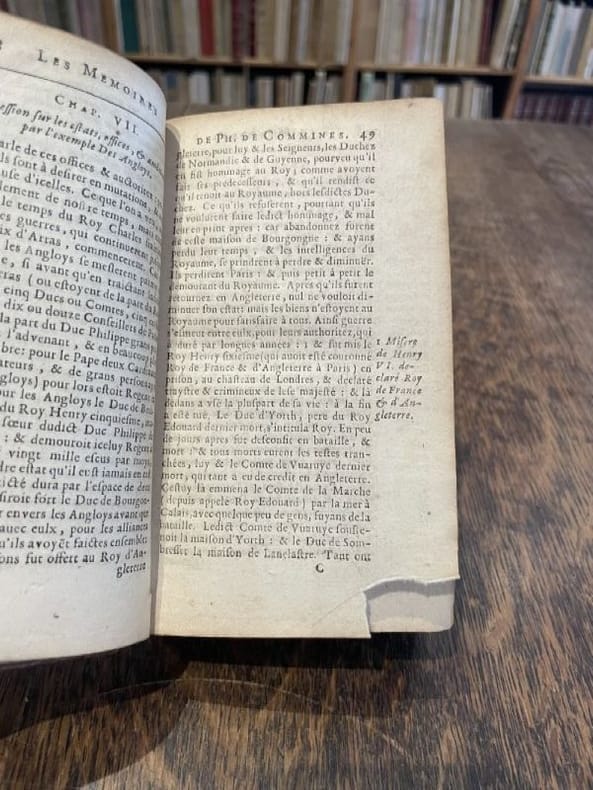 LES MEMOIRES
CHAP. VII.
ession sur les estats, offices, &
par l'exemple Des Angloys.
arle de ces offices & auctoritez
ils sont à desirer en mutations,
euse d'icelles. Ce que l'on a
lement de nostre temps, mais
le temps du Roy Charles
es guerres, qui continuerent
ix d'Arras, commencerent
les Angloys se meslerent
e, si avant qu'en traictant
ras (ou estoyent de la part du
cinq Ducs ou Comtes, cinq
dix ou douze Conseillers de
la part du Duc Philippe
l'advenant, & en beaucoup
bre: pour le Pape deux
ateurs, & de grans
gloys) pour lors estoit Regent
les Angloys le Duc de
du Roy Henry cinquiesme,
sœur dudict Duc Philippe
: & demouroit iceluy Regent
vingt mille escus par moys,
dre estat qu'il eust iamais en
icté dura par l'espace de
siroit fort le Duc de Bourgon-
r envers les Angloys avant que
avec eulx, pour les alliances
u'ils avoyēt faictes ensembles
ons fut offert au Roy d'An-
gleterre
DE PH. DE COMMINES. 49
gleterre, pour luy & les Seigneurs, les Duchez
de Normandie & de Guyenne, pourveu qu'il
en fist hommage au Roy; comme avoyent
fais ses predecesseurs, & qu'il rendist ce
qu'il tenoit au Royaume, hors lesdictes Du-
chez. Ce qu'ils refuserent, pourtant qu'ils
ne voulurent faire ledict hommage, & mal
leur en print apres: car abandonnez furent
de ceste maison de Bourgongne: & ayans
perdu leur temps, & les intelligences du
Royaume, se prindrent à perdre & diminuër.
Ils perdirent Paris: & puis petit à petit le
demourant du Royaume. Apres qu'ils furent
retournez en Angleterre, nul ne vouloit di-
minuer son estat: mais les biens n'estoyent au
Royaume pour satisfaire à tous. Ainsi guerre
s'esmeut entre eulx, pour leurs authoritez, qui
à duré par longues années: 1 & fut mis le
Roy Henry sixiesme (qui auoit esté couronné
Roy de France & d'Angleterre à Paris) en
prison, au chasteau de Londres, & declaré
traystre & crimineux de lese majesté: & là
dedans a vsé la pluspart de sa vie: à la fin
a esté tué. Le Duc d'Yorth, pere du Roy
Edouard dernier mort, s'intitula Roy. En peu
de jours apres fut desconfit en bataille, &
mort: & tous morts eurent les testes tran-
chées, luy & le Comte de Vuaruye dernier
mort, qui tant a eu de credit en Angleterre.
Cestuy la emmena le Comte de la Marche
(depuis appelé Roy Edouard) par la mer à
Calais, avec quelque peu de gens, fuyans de la
bataille. Ledict Comte de Vuaruye souste-
noit la maison d'Yorth: & le Duc de Som-
bresset la maison de Lanclastre. Tant ont
C
1 Misere
de Henry
VI. de-
claré Roy
de France
& d'An-
gleterre.